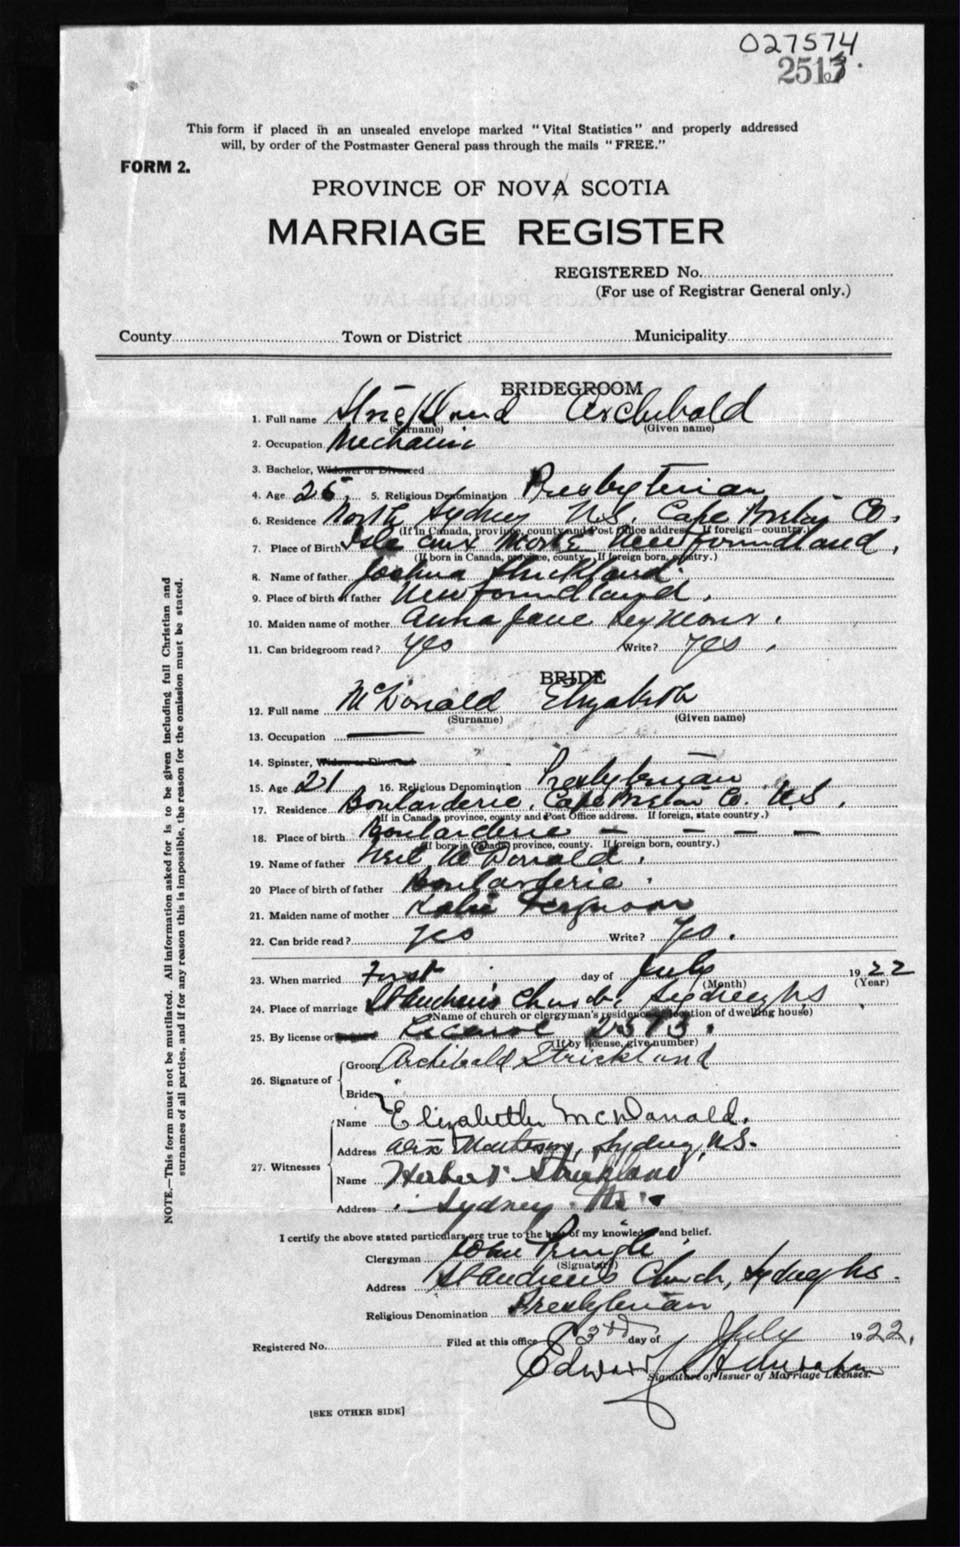 027574
2513.
This form if placed in an unsealed envelope marked "Vital Statistics" and properly addressed
will, by order of the Postmaster General pass through the mails "FREE."
FORM 2.
PROVINCE OF NOVA SCOTIA
MARRIAGE REGISTER
REGISTERED No.
(For use of Registrar General only.)
County Town or District Municipality
BRIDEGROOM
1. Full name Strickland Archibald
(Surname) (Given name)
2. Occupation Mechanic
3. Bachelor, Widower or Divorced
4. Age 25. 5. Religious Denomination Presbyterian
6. Residence North Sydney N.S. Cape Breton Co.
(If in Canada, province, county and Post Office address. If foreign country.)
7. Place of Birth Isle aux Morts Newfoundland.
(If born in Canada, province, county. If foreign born, country.)
8. Name of father Joshua Strickland.
9. Place of birth of father Newfoundland.
10. Maiden name of mother Anna Jane Seymour.
11. Can bridegroom read? Yes Write? Yes.
BRIDE
12. Full name McDonald Elizabeth
(Surname) (Given name)
13. Occupation —
14. Spinster, Widow or Divorced
15. Age 21 16. Religious Denomination Presbyterian
17. Residence Boularderie, Cape Breton Co. N.S.
(If in Canada province, county and Post Office address. If foreign, state country.)
18. Place of birth Boularderie — — — —
(If born in Canada province, county. If foreign born, country.)
19. Name of father Neil McDonald.
20 Place of birth of father Boularderie.
21. Maiden name of mother Ferguson
22. Can bride read? Yes Write? Yes.
23. When married First day of July 1922
(Month) (Year)
24. Place of marriage St Andrew's Church, Sydney NS
(Name of church or clergyman's residence or location of dwelling house)
25. By license or License 2573.
(If by license, give number)
26. Signature of Groom Archibald Strickland
Bride
Name Elizabeth McDonald.
27. Witnesses Address Alex Matheson, Sydney, N.S.
Name Herbert Strickland
Address Sydney NS
I certify the above stated particulars are true to the best of my knowledge and belief.
Clergyman John Pringle
(Signature)
Address St Andrew's Church, Sydney NS.
Religious Denomination Presbyterian
Registered No. Filed at this office 3rd day of July 1922.
Edward
Signature of Issuer of Marriage Licenses.
[SEE OTHER SIDE]
NOTE.—This form must not be mutilated. All information asked for is to be given including full Christian and
surnames of all parties, and if for any reason this is impossible, the reason for the omission must be stated.